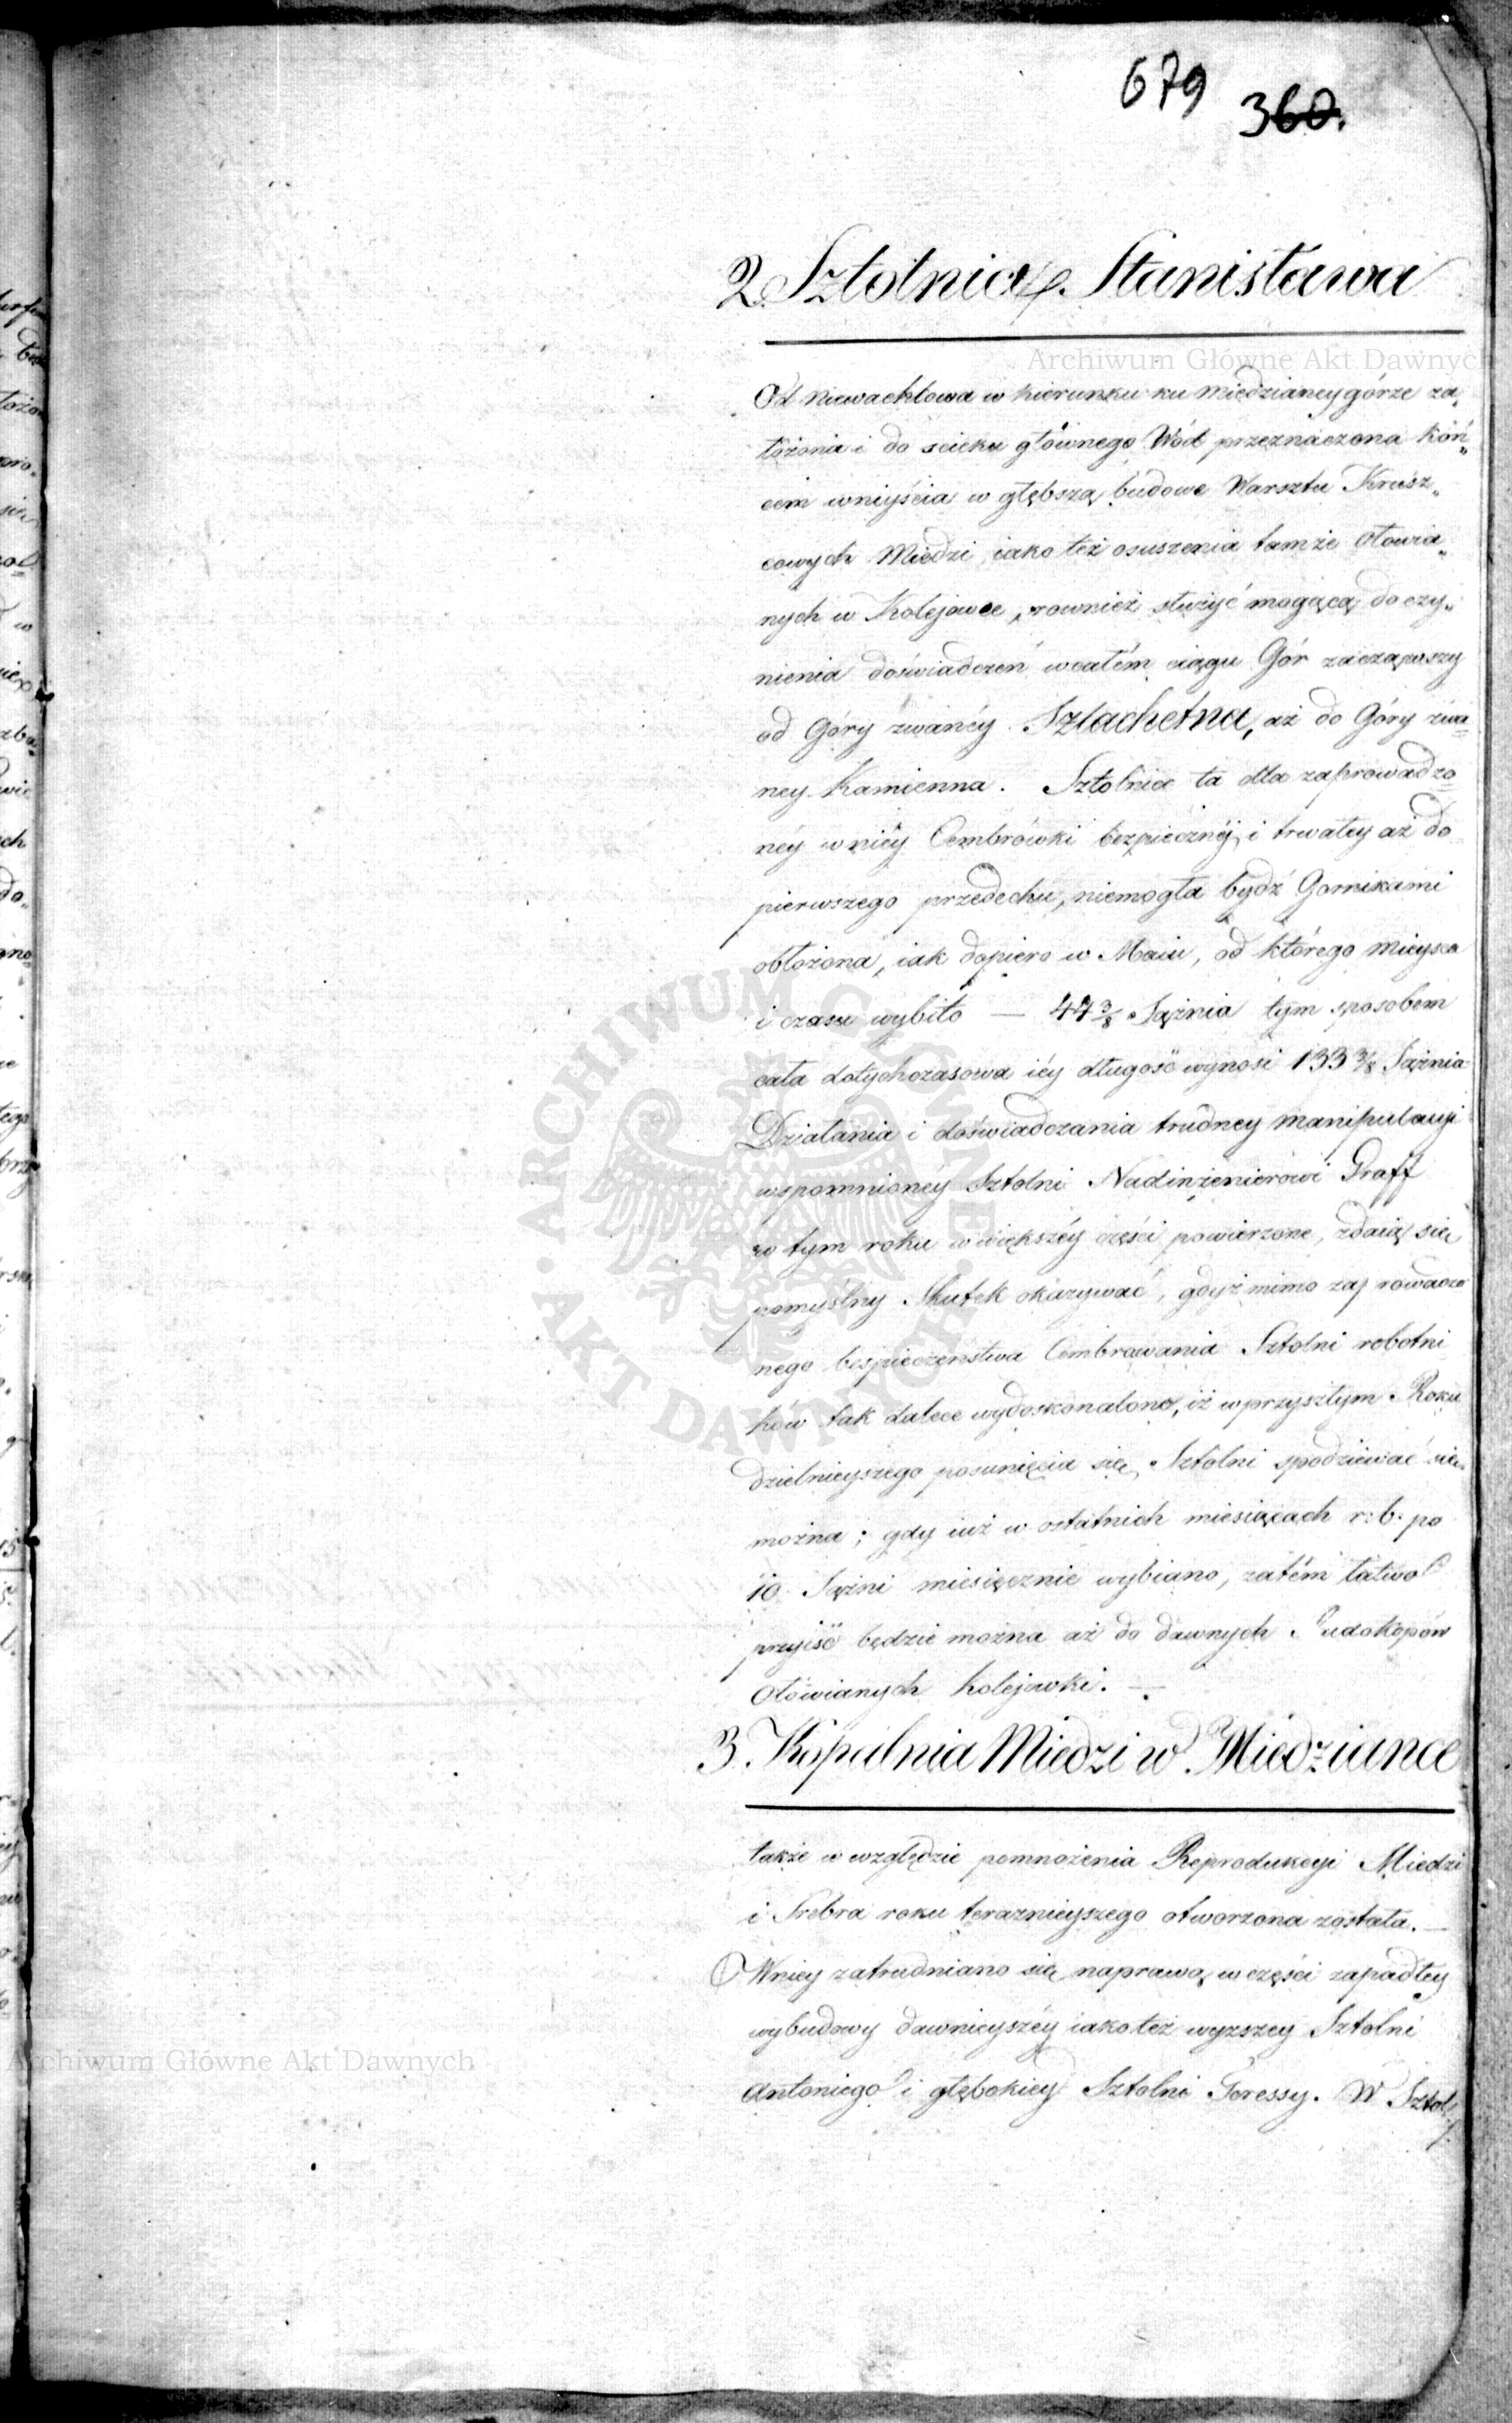 679 360.
2. Sztolnia S. Stanisława
Archiwum Główne Akt Dawnych
Od Niewachlowa w kierunku ku Miedzianeygórze za„
łożona i do scieku głównego Wód przeznaczona koń„
cem wniyścia w głębszą budowe Warsztu Krusz„
cowych Miedzi, iako też osuszenia tamże Ołowia„
nych w Kolejowce, rownież służyć mogącą do czy„
nienia doświadczeń wcałém ciągu Gór zacząwszy
od Góry zwanéy Szlachetna, aż do Góry zwa
ney Kamienna. Sztolnia ta dla zaprowadzo
néy w niéy Cembrówki bezpiecznéj i trwałey aż do
pierwszego przedechu, niemogła bydź Gornikami
obłożona, iak dopiero w Maiu, od którego mieysca
i czasu wybito — 44 3/8 Sążnia tym sposobem
cała dotychczasowa iéy długość wynosi 133 3/8 Sążnia
Działania i doświadczania trudney manipulacyi
wspomnionéy Sztolni Nadinżenierowi Graff
w tym roku w większéy części powierzone, zdaią się
pomyślny Skutek okazywać, gdyż mimo zaprowadzo
nego bespieczenstwa Cembrowania Sztolni robotni
ków tak dalece wydoskonalono, iż w przyszłym Roku
dzielnieyszego posunięcia się Sztolni spodziewać się
można; gdy iuż w ostatnich miesiącach r: b. po
10 Sążni miesięcznie wybiano, zatém łatwo
przyiść będzie można aż do dawnych Rudokopów
Ołowianych Kolejowki. —
3. Kopalnia Miedzi w Miedziance
także w względzie pomnożenia Reprodukcyi Miedzi
i Srebra roku teraznieyszego otworzona została. —
Wniey zatrudniano się naprawą w części zapadłey
wybudowy dawnieyszéy iakoteż wyzszey Sztolni
Antoniego i głębokiey Sztolni Teressy. W Sztol
Archiwum Główne Akt Dawnych
ARCHIWUM GŁÓWNE
AKT DAWNYCH